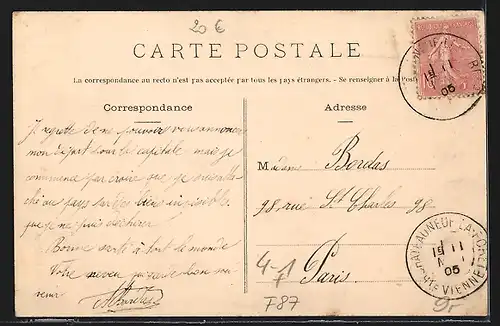 20 €
CARTE POSTALE
La correspondance au recto n'est pas acceptée par tous les pays étrangers. - Se renseigner à la Poste
Correspondance
Je regrette de ne pouvoir vous annoncer
mon départ pour la capitale mais je
commence par croire que je suis atta
ché au pays par des liens invisibles
que je ne puis déchirer.
Bonne santé à tout le monde
Votre neveu qui
Adresse
Madame Bordas
98, rue St Charles 98
Paris
4-1
F87
CHATEAUNEUF-LA-FORET
11 1
05
Hte VIENNE